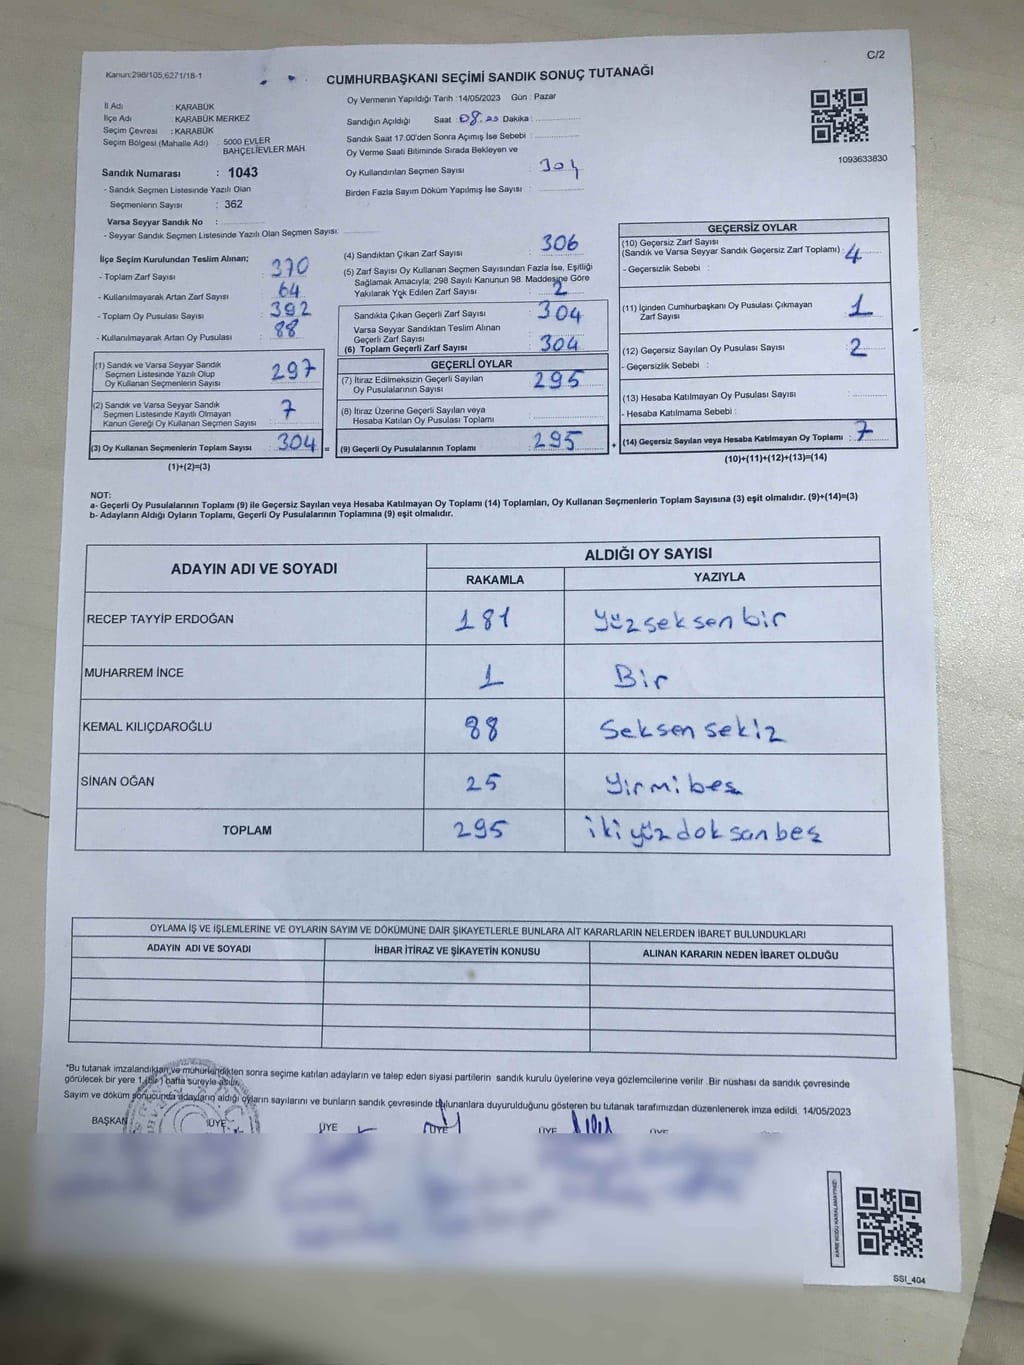 C/2
Kanun:298/105,6271/18-1
CUMHURBAŞKANI SEÇİMİ SANDIK SONUÇ TUTANAĞI
İl Adı : KARABÜK
İlçe Adı : KARABÜK MERKEZ
Seçim Çevresi : KARABÜK
Seçim Bölgesi (Mahalle Adı) : 5000 EVLER
BAHÇELİEVLER MAH.
Sandık Numarası : 1043
- Sandık Seçmen Listesinde Yazılı Olan
Seçmenlerin Sayısı : 362
Varsa Seyyar Sandık No :
- Seyyar Sandık Seçmen Listesinde Yazılı Olan Seçmen Sayısı:
Oy Vermenin Yapıldığı Tarih :14/05/2023 Gün : Pazar
Sandığın Açıldığı Saat 08.00 Dakika :
Sandık Saat 17:00'den Sonra Açımış İse Sebebi :
Oy Verme Saati Bitiminde Sırada Bekleyen ve
Oy Kullandırılan Seçmen Sayısı : 304
Birden Fazla Sayım Döküm Yapılmış İse Sayısı :
1093633830
İlçe Seçim Kurulundan Teslim Alınan;
- Toplam Zarf Sayısı : 370
- Kullanılmayarak Artan Zarf Sayısı : 64
- Toplam Oy Pusulası Sayısı : 392
- Kullanılmayarak Artan Oy Pusulası : 88
(1) Sandık ve Varsa Seyyar Sandık
Seçmen Listesinde Yazılı Olup
Oy Kullanan Seçmenlerin Sayısı : 297
(2) Sandık ve Varsa Seyyar Sandık
Seçmen Listesinde Kayıtlı Olmayan
Kanun Gereği Oy Kullanan Seçmen Sayısı : 7
(3) Oy Kullanan Seçmenlerin Toplam Sayısı : 304
(1)+(2)=(3)
=
(4) Sandıktan Çıkan Zarf Sayısı : 306
(5) Zarf Sayısı Oy Kullanan Seçmen Sayısından Fazla İse, Eşitliği
Sağlamak Amacıyla; 298 Sayılı Kanunun 98. Maddesine Göre
Yakılarak Yok Edilen Zarf Sayısı : 2
Sandıkta Çıkan Geçerli Zarf Sayısı : 304
Varsa Seyyar Sandıktan Teslim Alınan
Geçerli Zarf Sayısı
(6) Toplam Geçerli Zarf Sayısı : 304
GEÇERLİ OYLAR
(7) İtiraz Edilmeksizin Geçerli Sayılan
Oy Pusulalarının Sayısı : 295
(8) İtiraz Üzerine Geçerli Sayılan veya
Hesaba Katılan Oy Pusulası Toplamı :
(9) Geçerli Oy Pusulalarının Toplamı : 295
+
GEÇERSİZ OYLAR
(10) Geçersiz Zarf Sayısı
(Sandık ve Varsa Seyyar Sandık Geçersiz Zarf Toplamı) : 4
- Geçersizlik Sebebi :
(11) İçinden Cumhurbaşkanı Oy Pusulası Çıkmayan
Zarf Sayısı : 1
(12) Geçersiz Sayılan Oy Pusulası Sayısı : 2
- Geçersizlik Sebebi :
(13) Hesaba Katılmayan Oy Pusulası Sayısı :
- Hesaba Katılmama Sebebi :
(14) Geçersiz Sayılan veya Hesaba Katılmayan Oy Toplamı : 7
(10)+(11)+(12)+(13)=(14)
NOT:
a- Geçerli Oy Pusulalarının Toplamı (9) ile Geçersiz Sayılan veya Hesaba Katılmayan Oy Toplamı (14) Toplamları, Oy Kullanan Seçmenlerin Toplam Sayısına (3) eşit olmalıdır. (9)+(14)=(3)
b- Adayların Aldığı Oyların Toplamı, Geçerli Oy Pusulalarının Toplamına (9) eşit olmalıdır.
ADAYIN ADI VE SOYADI
ALDIĞI OY SAYISI
RAKAMLA YAZIYLA
RECEP TAYYİP ERDOĞAN 181 Yüzseksenbir
MUHARREM İNCE 1 Bir
KEMAL KILIÇDAROĞLU 88 Seksen sekiz
SİNAN OĞAN 25 Yirmibeş
TOPLAM 295 ikiyüzdoksanbeş
OYLAMA İŞ VE İŞLEMLERİNE VE OYLARIN SAYIM VE DÖKÜMÜNE DAİR ŞİKAYETLERLE BUNLARA AİT KARARLARIN NELERDEN İBARET BULUNDUKLARI
ADAYIN ADI VE SOYADI İHBAR İTİRAZ VE ŞİKAYETİN KONUSU ALINAN KARARIN NEDEN İBARET OLDUĞU
*Bu tutanak imzalandıktan ve mühürlendikten sonra seçime katılan adayların ve talep eden siyasi partilerin sandık kurulu üyelerine veya gözlemcilerine verilir .Bir nüshası da sandık çevresinde
görülecek bir yere 1 (Bir ) hafta süreyle asılır.
Sayım ve döküm sonucunda adayların aldığı oyların sayılarını ve bunların sandık çevresinde bulunanlara duyurulduğunu gösteren bu tutanak tarafımızdan düzenlenerek imza edildi. 14/05/2023
BAŞKAN ÜYE ÜYE ÜYE ÜYE ÜYE
KARE KODU KARALAMAYINIZ!
SSI_404